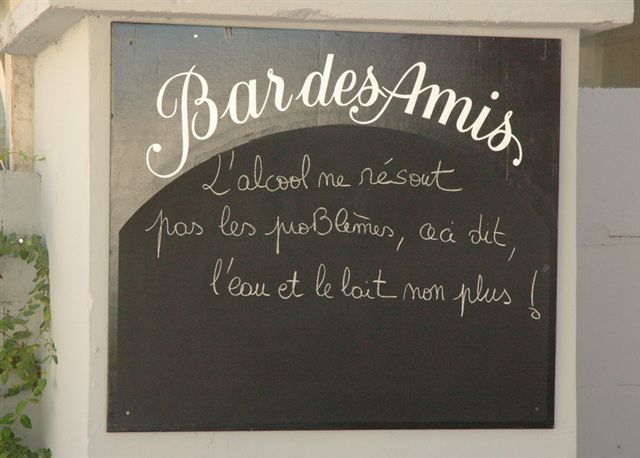 Bar des Amis
L'alcool ne résout
pas les proBlèmes, ceci dit,
l'eau et le lait non plus !